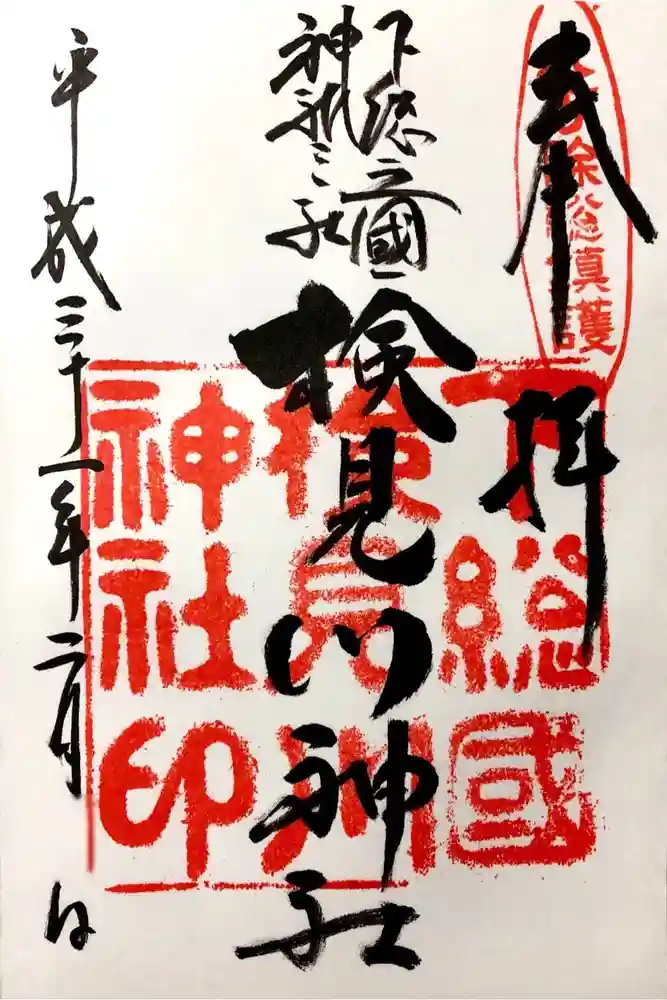 奉拝
除総鎮護
下総國
検見川
神社印
下総之國
神祇三社
検見川神社
平成三十一年二月 日